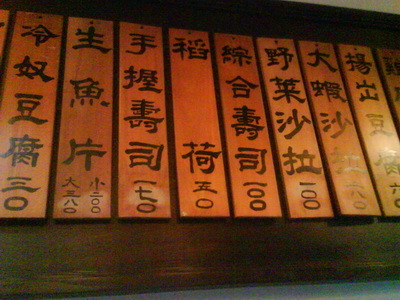 冷奴豆腐三〇
生魚片
小二〇〇
手握壽司一七〇
稻荷五〇
綜合壽司一〇〇
野菜沙拉一〇〇
大蝦沙拉
揚出豆腐六〇